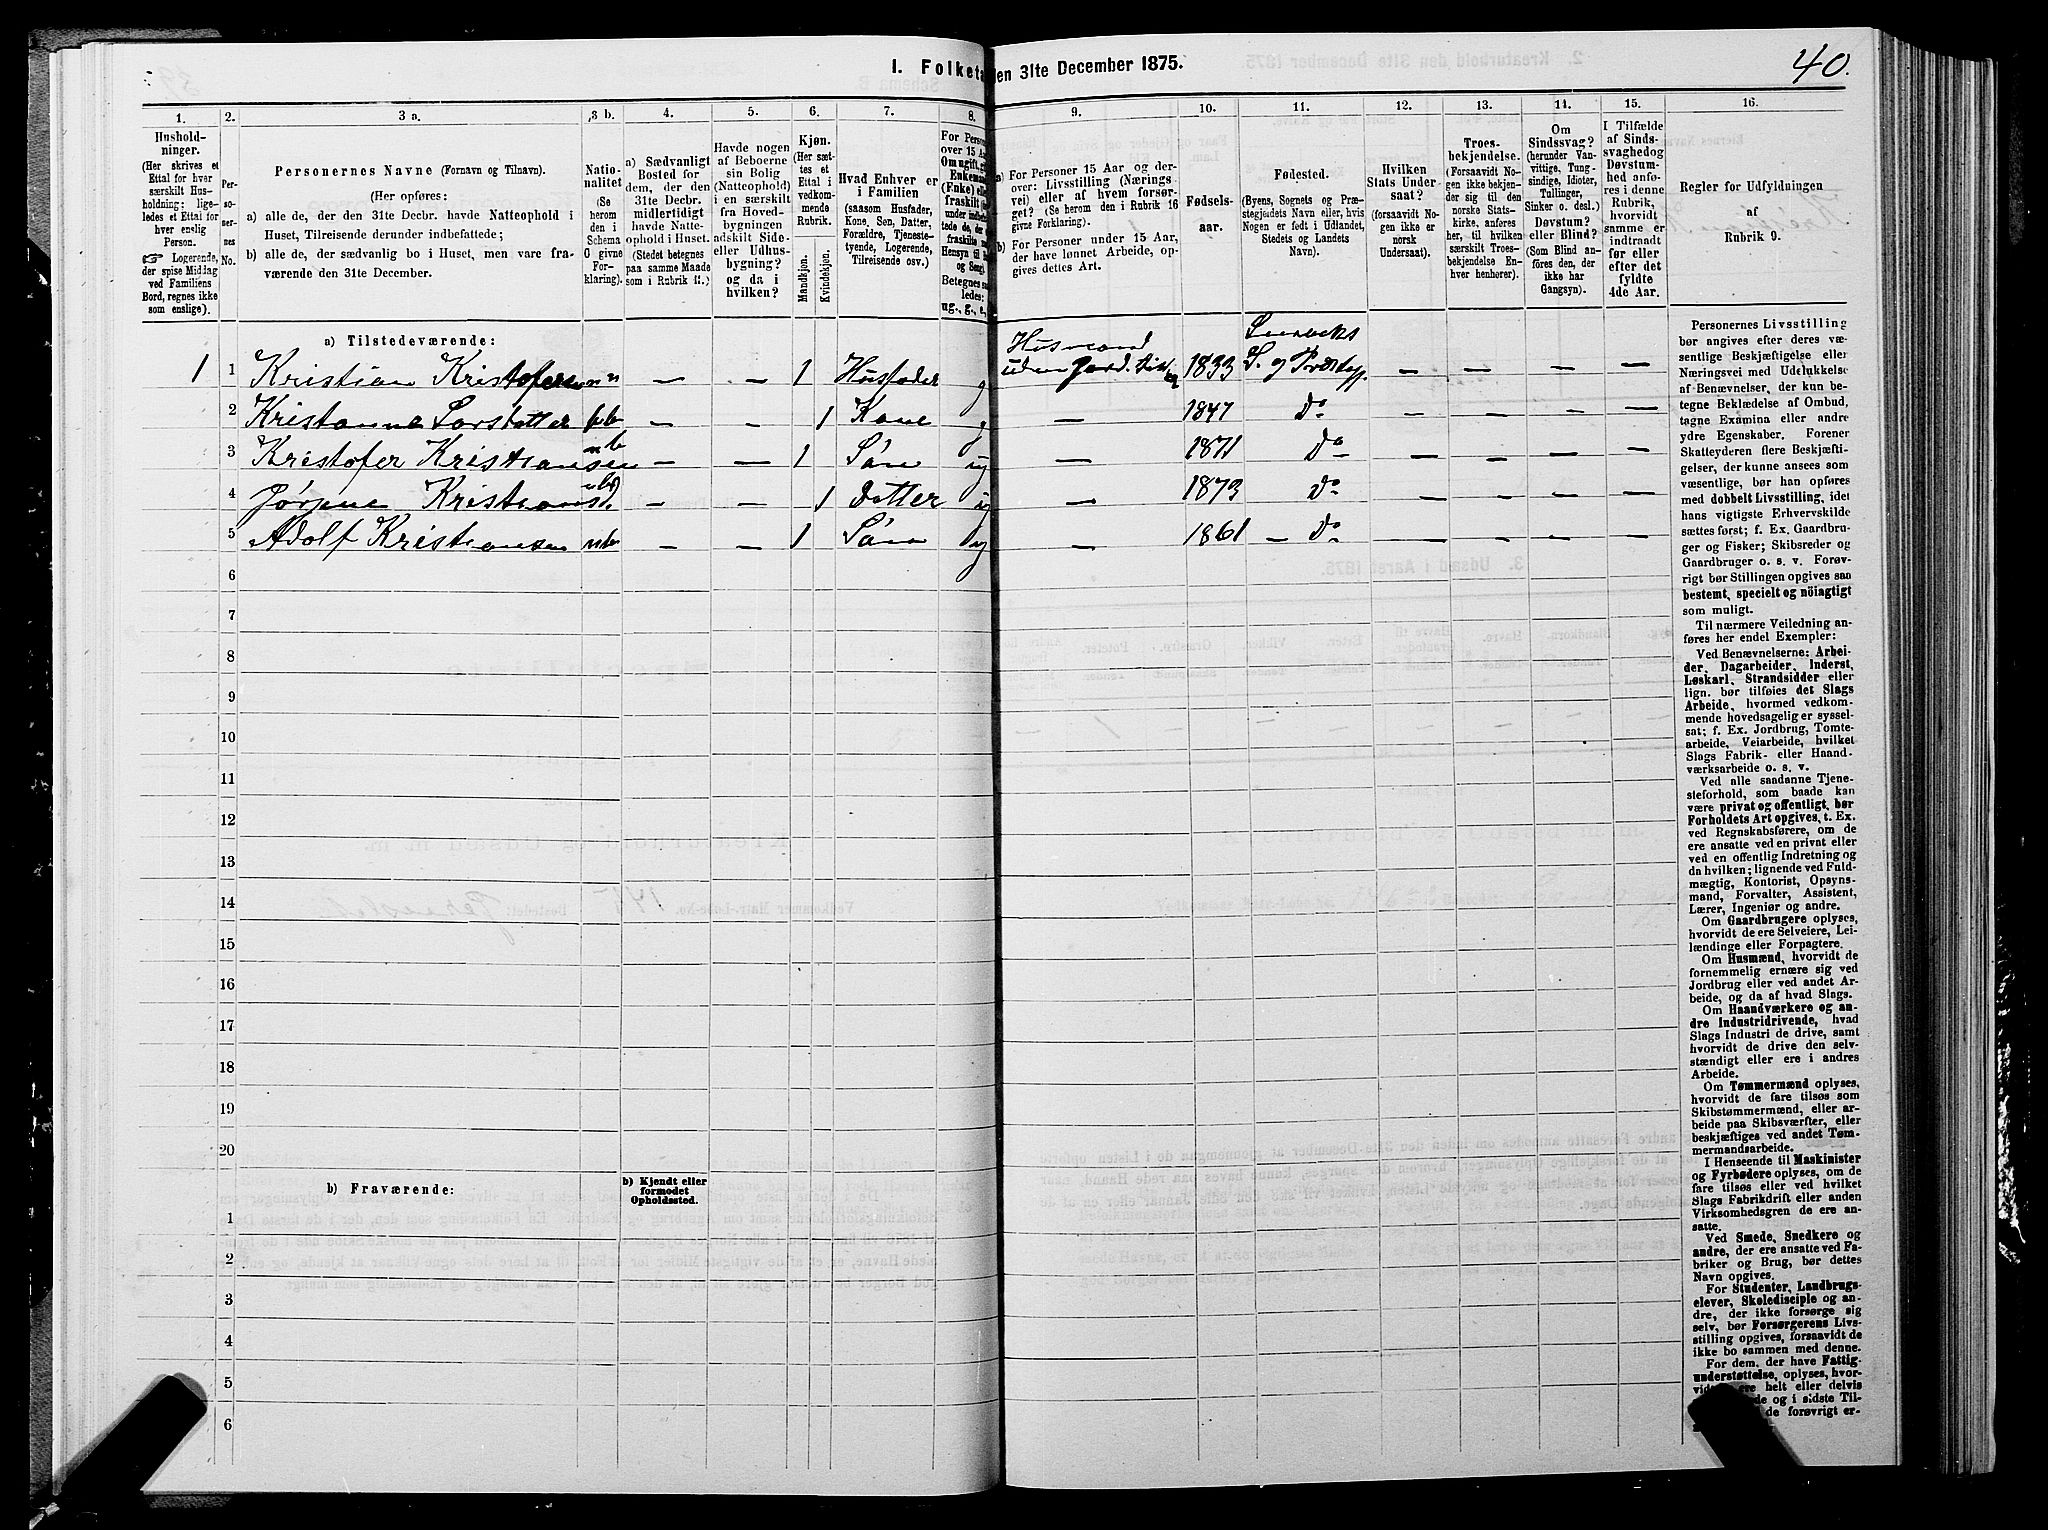 40.
I. Folketa
en 31te December 1875.
1.
2.
3 a.
3 b.
4.
5.
6.
7.
8.
9.
10.
11.
12.
13.
14.
15.
16.
Hushold-
ninger.
(Her skrives et
Ettal for hver
særskilt Hus-
holdning; lige-
ledes et Ettal for
hver enslig
Person.
☞ Logerende,
der spise Middag
ved Familiens
Bord, regnes ikke
som enslige).
Per-
so-
ner-
nes
No.
Personernes Navne (Fornavn og Tilnavn).
(Her opføres:
a) alle de, der den 31te Decbr. havde Natteophold i
Huset, Tilreisende derunder indbefattede;
b) alle de, der sædvanlig bo i Huset, men vare fra-
værende den 31te December.
Natio-
nalitet
(Se
herom
den i
Schema
C givne
For-
klaring).
a) Sædvanligt
Bosted for
dem, der den
31te Decbr.
midlertidigt
havde Natte-
ophold i Huset.
(Stedet betegnes
paa samme Maade
som i Rubrik 11.)
Havde nogen
af Beboerne
sin Bolig
(Natteophold)
i en særskilt
fra Hoved-
bygningen
adskilt Side-
eller Udhus-
bygning?
og da i
hvilken?
Kjøn.
(Her sæt-
tes et
Ettal i
vedkom-
mende
Rubrik.
Mandkjøn.
Kvindekjøn.
Hvad Enhver er
i Familien
(saasom Husfader,
Kone, Søn, Datter,
Forældre, Tjeneste-
tyende, Logerende,
Tilreisende osv.)
For Person
over 15 A
Om ugift, g
Enkemand
(Enke) elle
fraskilt
under indb
tede de, de
fraskilte
Hensyn til
og Seng).
Betegnes saa
ledes:
ug., g., e.,
a) For Personer 15 Aar og der-
over: Livsstilling (Nærings-
vei) eller af hvem forsør-
get? (Se herom den i Rubrik 16
givne Forklaring).
b) For Personer under 15 Aar,
der have lønnet Arbeide, op-
gives dettes Art.
Fødsels-
aar.
Fødested.
(Byens, Sognets og Præ-
stegjeldets Navn eller, hvis
Nogen er født i Udlandet,
Stedets og Landets
Navn).
Hvilken
Stats Under-
saat?
(forsaavidt No-
gen ikke er
norsk
Undersaat).
Troes-
bekjendelse.
(Forsaavidt No-
gen ikke bekjen-
der sig til den
norske Stats-
kirke, anføres
her, til hvilken
særskilt Troes-
bekjendelse En-
hver henhører).
Om
Sindssvag?
(herunder Van-
vittige, Tung-
sindige, Idioter,
Tullinger,
Sinker o. desl.)
Døvstum?
eller Blind?
(Som Blind an-
føres den, der
ikke har
Gangsyn).
I Tilfælde
af Sinds-
svaghed og
Døvstum-
hed anfø-
res i denne
Rubrik,
hvorvidt
samme er
indtraadt
før eller
efter det
fyldte
4de Aar.
Regler for Udfyldningen
af
Rubrik 9.
a) Tilstedeværende:
1 1 Kristian Kristofersen n — — 1 Husfader g Husmand uden Jord 1833 S. og Præstegj. — — — —
2 Kristanne Larsdatter — — 1 Kone g — 1847 Do — — — —
3 Kristofer Kristiansen — — 1 Søn ug — 1871 Do — — — —
4 Jørgine Kristiansd. — — 1 Datter ug — 1873 Do — — — —
5 Adolf Kristiansen — — 1 Søn ug — 1861 — Do — — — —
6
7
8
9
10
11
12
13
14
15
16
17
18
19
20
b) Fraværende:
b) Kjendt eller
formodet
Opholdssted.
1
2
3
4
5
6
Personernes Livsstilling
bør angives efter deres væ-
sentlige Beskjæftigelse eller
Næringsvei med Udelukkelse
af Benævnelser, der kun be-
tegne Beklædelse af Ombud,
tagne Examina eller andre
ydre Egenskaber. Forener
Skatteyderen flere Beskjæfti-
gelser, der kunne ansees som
væsentlige, bør han opføres
med dobbelt Livsstilling, idet
hans vigtigste Erhvervskilde
sættes først; f. Ex. Gaardbru-
ger og Fisker; Skibsreder og
Gaardbruger o. s. v. Forøv-
rigt bør Stillingen opgives saa
bestemt, specielt og nöiagtigt
som muligt.
Til nærmere Veiledning an-
føres her endel Exempler:
Ved Benævnelserne: Arbei-
der, Dagarbeider, Inderst,
Løskarl, Strandsidder eller
lign. bør tilføies det Slags
Arbeide, hvormed vedkom-
mende hovedsagelig er syssel-
sat; f. Ex. Jordbrug, Tomte-
arbeide, Veiarbeide, hvilket
Slags Fabrik- eller Haand-
værksarbeide o. s. v.
Ved alle saadanne Tjene-
steforhold, som baade kan
være privat og offentligt, bør
Forholdets Art opgives, t. Ex.
ved Regnskabsførere, om de
ere ansatte ved en privat eller
ved en offentlig Indretning og
da hvilken; lignende ved Fuld-
mægtig, Kontorist, Opsyns-
mand, Forvalter, Assistent,
Lærer, Ingeniør og andre.
Om Gaardbrugere oplyses,
hvorvidt de ere Selveiere, Lei-
lændinge eller Forpagtere.
Om Husmænd, hvorvidt de
fornemmelig ernære sig ved
Jordbrug eller ved andet Ar-
beide, og da af hvad Slags.
Om Haandværkere og an-
dre Industridrivende, hvad
Slags Industri de drive, samt
hvorvidt de drive den selv-
stændigt eller ere i andres
Arbeide.
Om Tømmermænd oplyses,
hvorvidt de fare tilsøs som
Skibstømmermænd, eller ar-
beide paa Skibsværfter, eller
beskjæftiges ved andet Tøm-
mermandsarbeide.
I Henseende til Maskinister
og Fyrbødere oplyses, om de
fare tilsøs eller ved hvilket
Slags Fabrikdrift eller anden
Virksomhedsgren de ere an-
satte.
Ved Smede, Snedkere og
andre, der ere ansatte ved Fa-
briker og Brug, bør dettes
Navn opgives.
For Studenter, Landbrugs-
elever, Skoledisciple og an-
dre, der ikke forsørge sig
selv, bør Forsørgerens Livs-
stilling opgives, forsaavidt de
ikke bo sammen med denne.
For dem, der have Fattig-
understøttelse, oplyses, hvor-
helt eller delvis
de og i sidste Til-
de forøvrigt er-